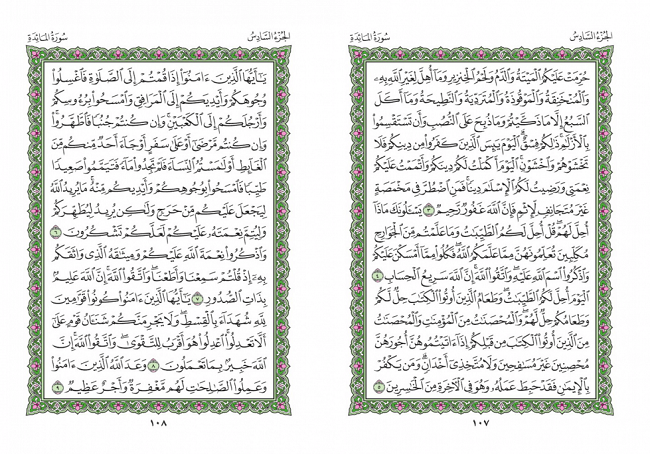 الجزء السادس
سورة المائدة
حُرِّمَتْ عَلَيْكُمُ ٱلْمَيْتَةُ وَٱلدَّمُ وَلَحْمُ ٱلْخِنزِيرِ وَمَآ أُهِلَّ لِغَيْرِ ٱللَّهِ بِهِۦ
وَٱلْمُنْخَنِقَةُ وَٱلْمَوْقُوذَةُ وَٱلْمُتَرَدِّيَةُ وَٱلنَّطِيحَةُ وَمَآ أَكَلَ
ٱلسَّبُعُ إِلَّا مَا ذَكَّيْتُمْ وَمَا ذُبِحَ عَلَى ٱلنُّصُبِ وَأَن تَسْتَقْسِمُوا۟
بِٱلْأَزْلَٰمِ ۚ ذَٰلِكُمْ فِسْقٌ ۗ ٱلْيَوْمَ يَئِسَ ٱلَّذِينَ كَفَرُوا۟ مِن دِينِكُمْ فَلَا
تَخْشَوْهُمْ وَٱخْشَوْنِ ۚ ٱلْيَوْمَ أَكْمَلْتُ لَكُمْ دِينَكُمْ وَأَتْمَمْتُ عَلَيْكُمْ
نِعْمَتِى وَرَضِيتُ لَكُمُ ٱلْإِسْلَٰمَ دِينًا ۚ فَمَنِ ٱضْطُرَّ فِى مَخْمَصَةٍ
غَيْرَ مُتَجَانِفٍ لِّإِثْمٍ ۙ فَإِنَّ ٱللَّهَ غَفُورٌ رَّحِيمٌ ٣ يَسْـَٔلُونَكَ مَاذَآ
أُحِلَّ لَهُمْ ۖ قُلْ أُحِلَّ لَكُمُ ٱلطَّيِّبَٰتُ ۙ وَمَا عَلَّمْتُم مِّنَ ٱلْجَوَارِحِ
مُكَلِّبِينَ تُعَلِّمُونَهُنَّ مِمَّا عَلَّمَكُمُ ٱللَّهُ ۖ فَكُلُوا۟ مِمَّآ أَمْسَكْنَ عَلَيْكُمْ
وَٱذْكُرُوا۟ ٱسْمَ ٱللَّهِ عَلَيْهِ ۖ وَٱتَّقُوا۟ ٱللَّهَ ۚ إِنَّ ٱللَّهَ سَرِيعُ ٱلْحِسَابِ ٤
ٱلْيَوْمَ أُحِلَّ لَكُمُ ٱلطَّيِّبَٰتُ ۖ وَطَعَامُ ٱلَّذِينَ أُوتُوا۟ ٱلْكِتَٰبَ حِلٌّ لَّكُمْ
وَطَعَامُكُمْ حِلٌّ لَّهُمْ ۖ وَٱلْمُحْصَنَٰتُ مِنَ ٱلْمُؤْمِنَٰتِ وَٱلْمُحْصَنَٰتُ
مِنَ ٱلَّذِينَ أُوتُوا۟ ٱلْكِتَٰبَ مِن قَبْلِكُمْ إِذَآ ءَاتَيْتُمُوهُنَّ أُجُورَهُنَّ
مُحْصِنِينَ غَيْرَ مُسَٰفِحِينَ وَلَا مُتَّخِذِىٓ أَخْدَانٍ ۗ وَمَن يَكْفُرْ
بِٱلْإِيمَٰنِ فَقَدْ حَبِطَ عَمَلُهُۥ وَهُوَ فِى ٱلْـَٔاخِرَةِ مِنَ ٱلْخَٰسِرِينَ ٥
١٠٧
الجزء السادس
سورة المائدة
يَٰٓأَيُّهَا ٱلَّذِينَ ءَامَنُوٓا۟ إِذَا قُمْتُمْ إِلَى ٱلصَّلَوٰةِ فَٱغْسِلُوا۟
وُجُوهَكُمْ وَأَيْدِيَكُمْ إِلَى ٱلْمَرَافِقِ وَٱمْسَحُوا۟ بِرُءُوسِكُمْ
وَأَرْجُلَكُمْ إِلَى ٱلْكَعْبَيْنِ ۚ وَإِن كُنتُمْ جُنُبًا فَٱطَّهَّرُوا۟ ۚ
وَإِن كُنتُم مَّرْضَىٰٓ أَوْ عَلَىٰ سَفَرٍ أَوْ جَآءَ أَحَدٌ مِّنكُم مِّنَ
ٱلْغَآئِطِ أَوْ لَٰمَسْتُمُ ٱلنِّسَآءَ فَلَمْ تَجِدُوا۟ مَآءً فَتَيَمَّمُوا۟ صَعِيدًا
طَيِّبًا فَٱمْسَحُوا۟ بِوُجُوهِكُمْ وَأَيْدِيكُم مِّنْهُ ۚ مَا يُرِيدُ ٱللَّهُ
لِيَجْعَلَ عَلَيْكُم مِّنْ حَرَجٍ وَلَٰكِن يُرِيدُ لِيُطَهِّرَكُمْ
وَلِيُتِمَّ نِعْمَتَهُۥ عَلَيْكُمْ لَعَلَّكُمْ تَشْكُرُونَ ٦
وَٱذْكُرُوا۟ نِعْمَةَ ٱللَّهِ عَلَيْكُمْ وَمِيثَٰقَهُ ٱلَّذِى وَاثَقَكُم
بِهِۦٓ إِذْ قُلْتُمْ سَمِعْنَا وَأَطَعْنَا ۖ وَٱتَّقُوا۟ ٱللَّهَ ۚ إِنَّ ٱللَّهَ عَلِيمٌۢ
بِذَاتِ ٱلصُّدُورِ ٧ يَٰٓأَيُّهَا ٱلَّذِينَ ءَامَنُوا۟ كُونُوا۟ قَوَّٰمِينَ
لِلَّهِ شُهَدَآءَ بِٱلْقِسْطِ ۖ وَلَا يَجْرِمَنَّكُمْ شَنَـَٔانُ قَوْمٍ عَلَىٰٓ
أَلَّا تَعْدِلُوا۟ ۚ ٱعْدِلُوا۟ هُوَ أَقْرَبُ لِلتَّقْوَىٰ ۖ وَٱتَّقُوا۟ ٱللَّهَ ۚ إِنَّ
ٱللَّهَ خَبِيرٌۢ بِمَا تَعْمَلُونَ ٨ وَعَدَ ٱللَّهُ ٱلَّذِينَ ءَامَنُوا۟
وَعَمِلُوا۟ ٱلصَّٰلِحَٰتِ ۙ لَهُم مَّغْفِرَةٌ وَأَجْرٌ عَظِيمٌ ٩
١٠٨